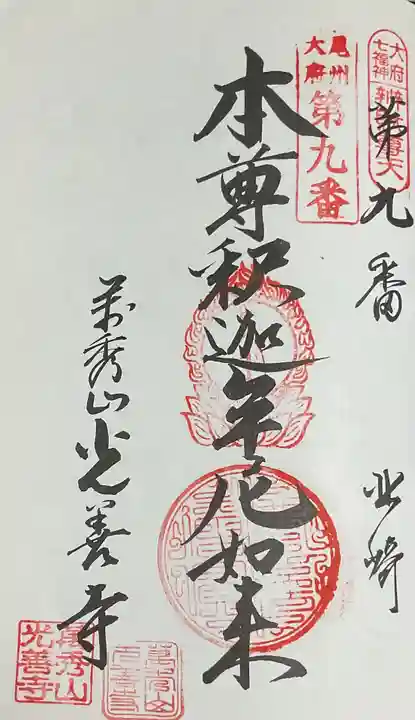 大府
七福神
尾州
大府
第九番
第九番
北崎
本尊釈迦牟尼如来
萬秀山光善寺
萬秀山
光善寺